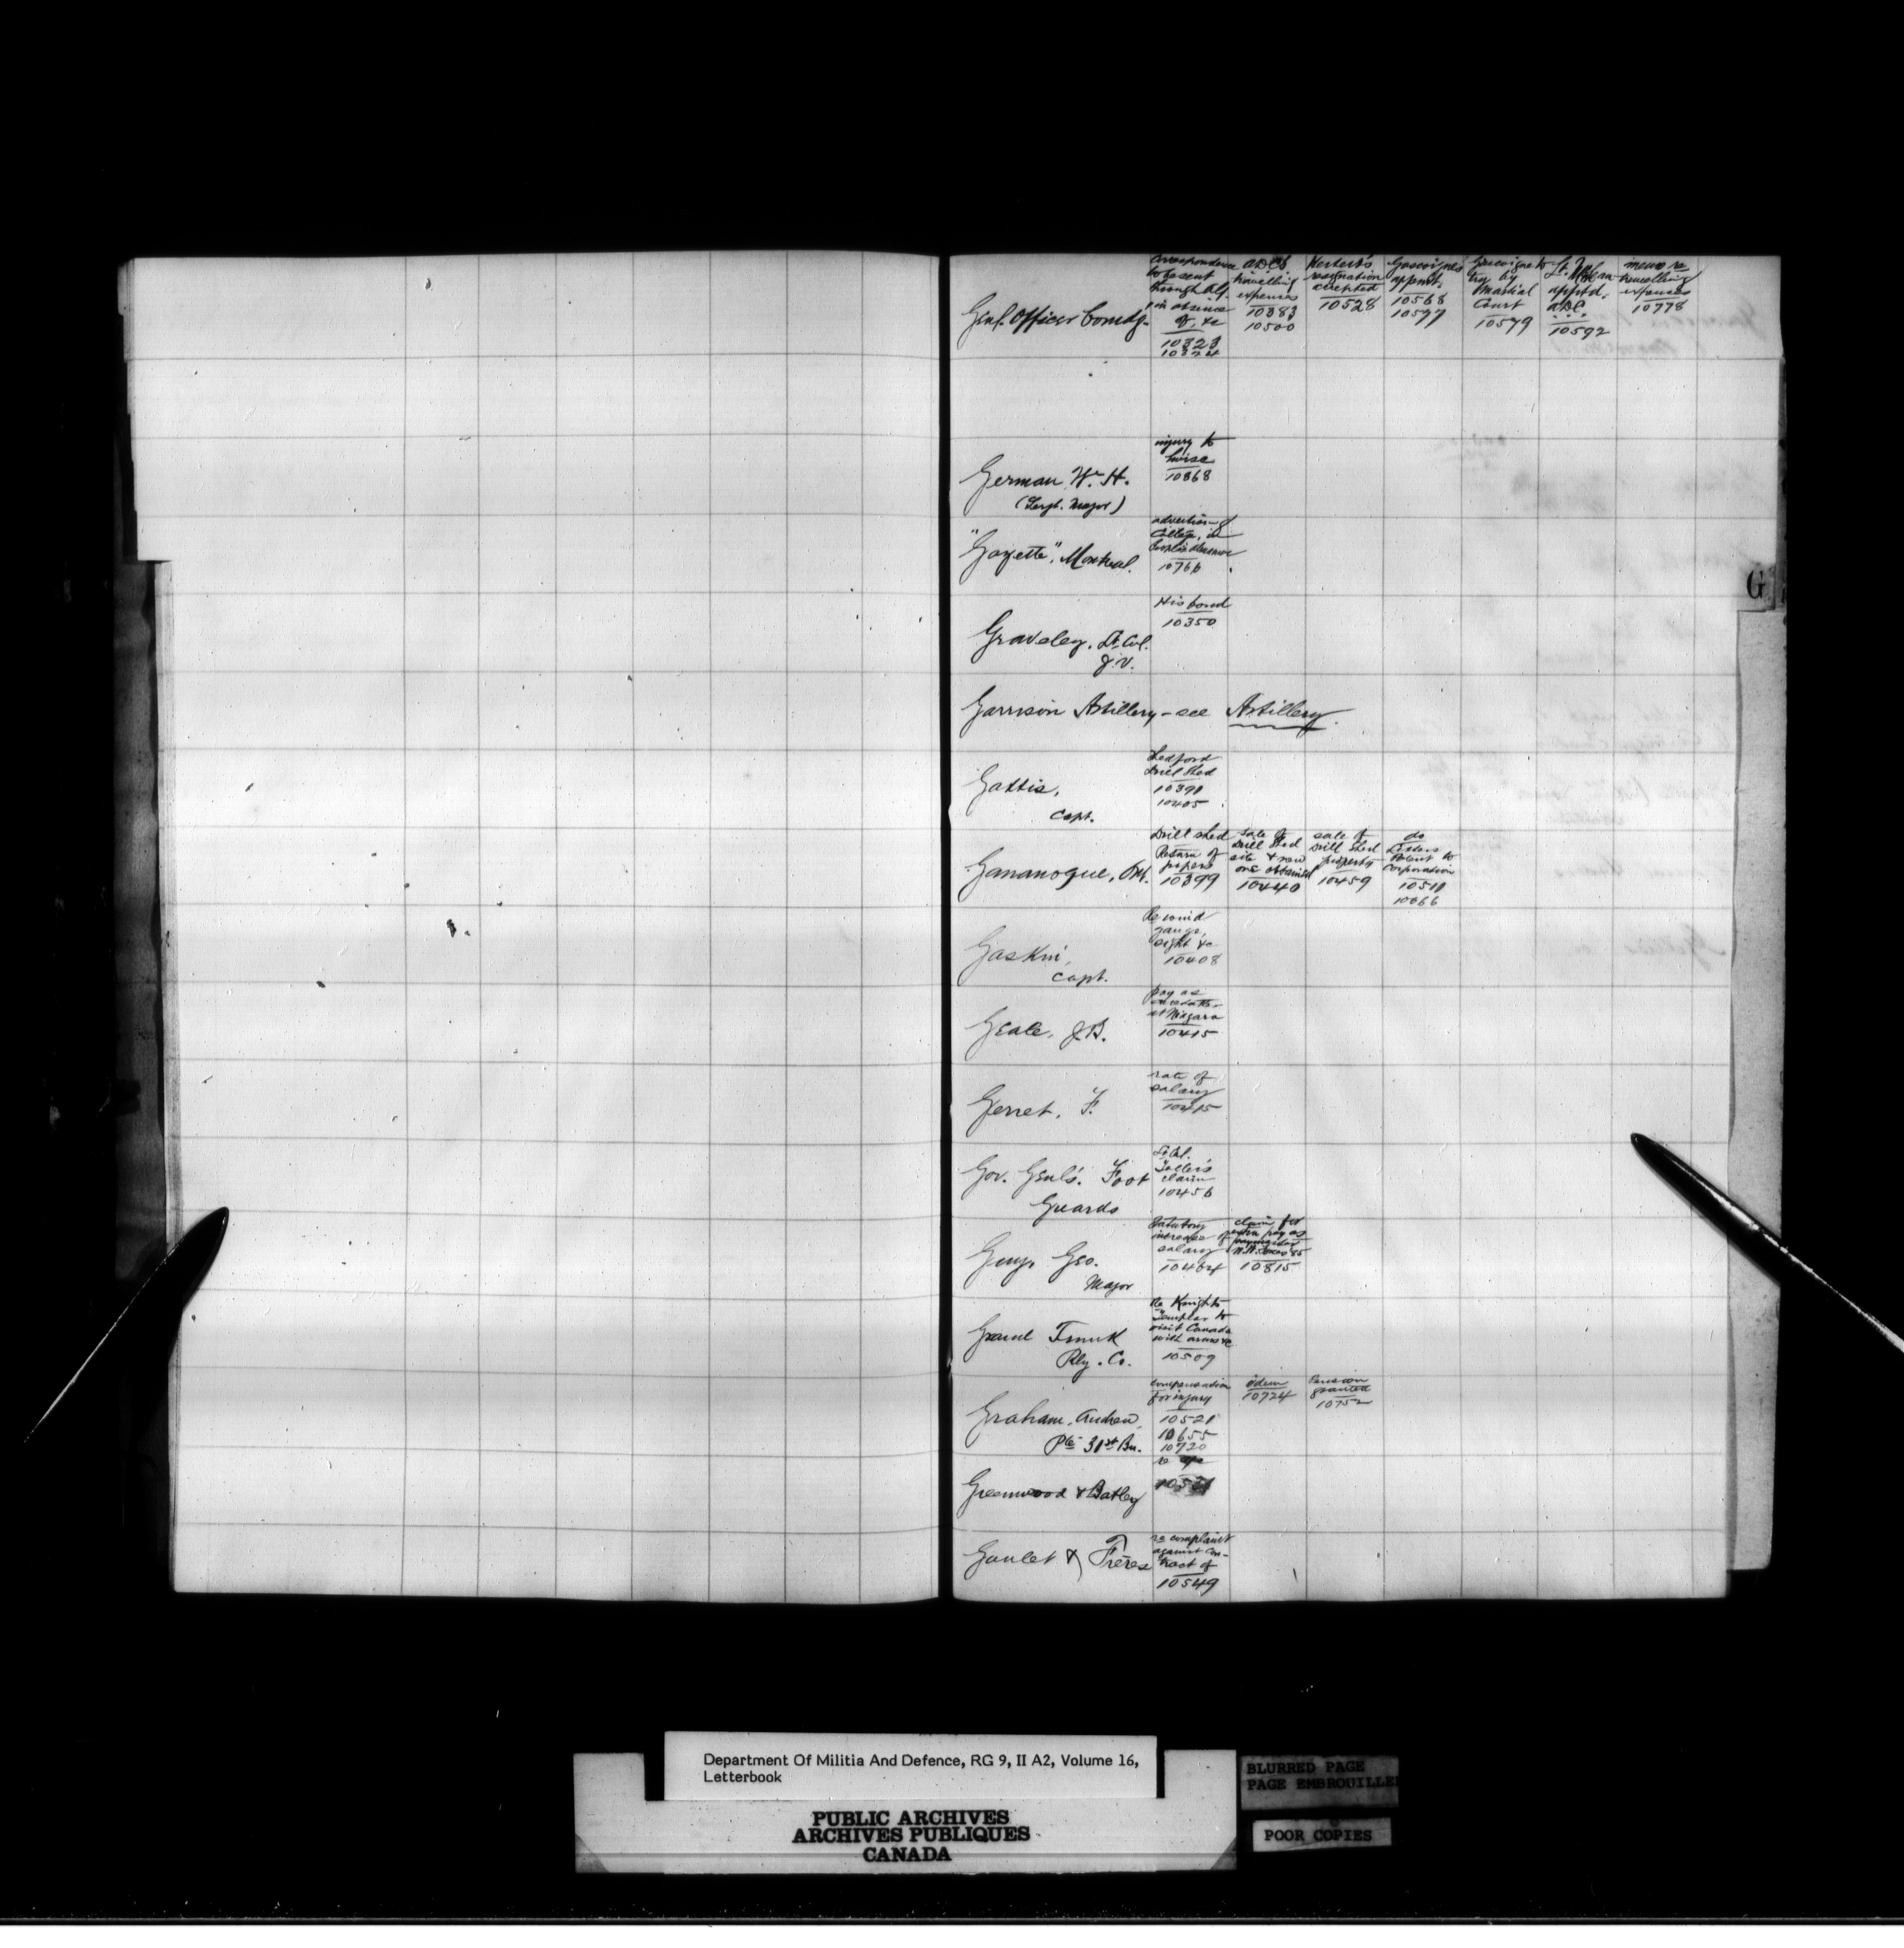 Genl. Officer Comdg.
correspondence
to be sent
through Adj.
in absence
of, &c
10323
10324
ADC's
travelling
expenses
10383
10500
Herbert's
resignation
accepted
10528
Gascoigne's
appmt.
10568
10597
Gascoigne to
try by
Martial
Court
10579
Lt.
apptd.
ADC
10592
memo re
travelling
expenses
10778
German W. H.
(Sergt. Major)
injury to
horse
10868
"Gazette", Montreal.
College, in
10766
Graveley, Lt. Col.
J. V.
His bond
10350
Garrison Artillery - see Artillery.
Gattis,
Capt.
Thedford
Drill Shed
10391
10405
Gananoque, Ont.
Drill shed
Return of
papers
10399
Sale of
Drill Shed
site & new
one obtained
10440
sale of
Drill Shed
property
10459
do
Letters
Patent to
Corporation
10511
10566
Gaskin,
Capt.
Re wind
gauge,
sight &c
10408
Geale, J. B.
pay as
at Niagara
10415
Gerret, F.
rate of
salary
10415
Gov. Genl's. Foot
Guards
Lt. Col.
Toller's
claim
10456
Guy, Geo.
Major
Statutory
increase of
salary
10464
claim for
extra pay as
paymaster
N.W. '85
10815
Grand Trunk
Rly. Co.
Re Knights
Templar to
visit Canada
with arms &c
10509
Graham, Andrew,
Pte 31st Bn.
compensation
for injury
10521
10655
10720
idem
10724
Pension
granted
10752
Greenwood & Batley
re
Goulet & Frères
re complaint
against con-
tract of
10549
G
Department Of Militia And Defence, RG 9, II A2, Volume 16,
Letterbook
PUBLIC ARCHIVES
ARCHIVES PUBLIQUES
CANADA
BLURRED PAGE
PAGE EMBROUILLEE
POOR COPIES